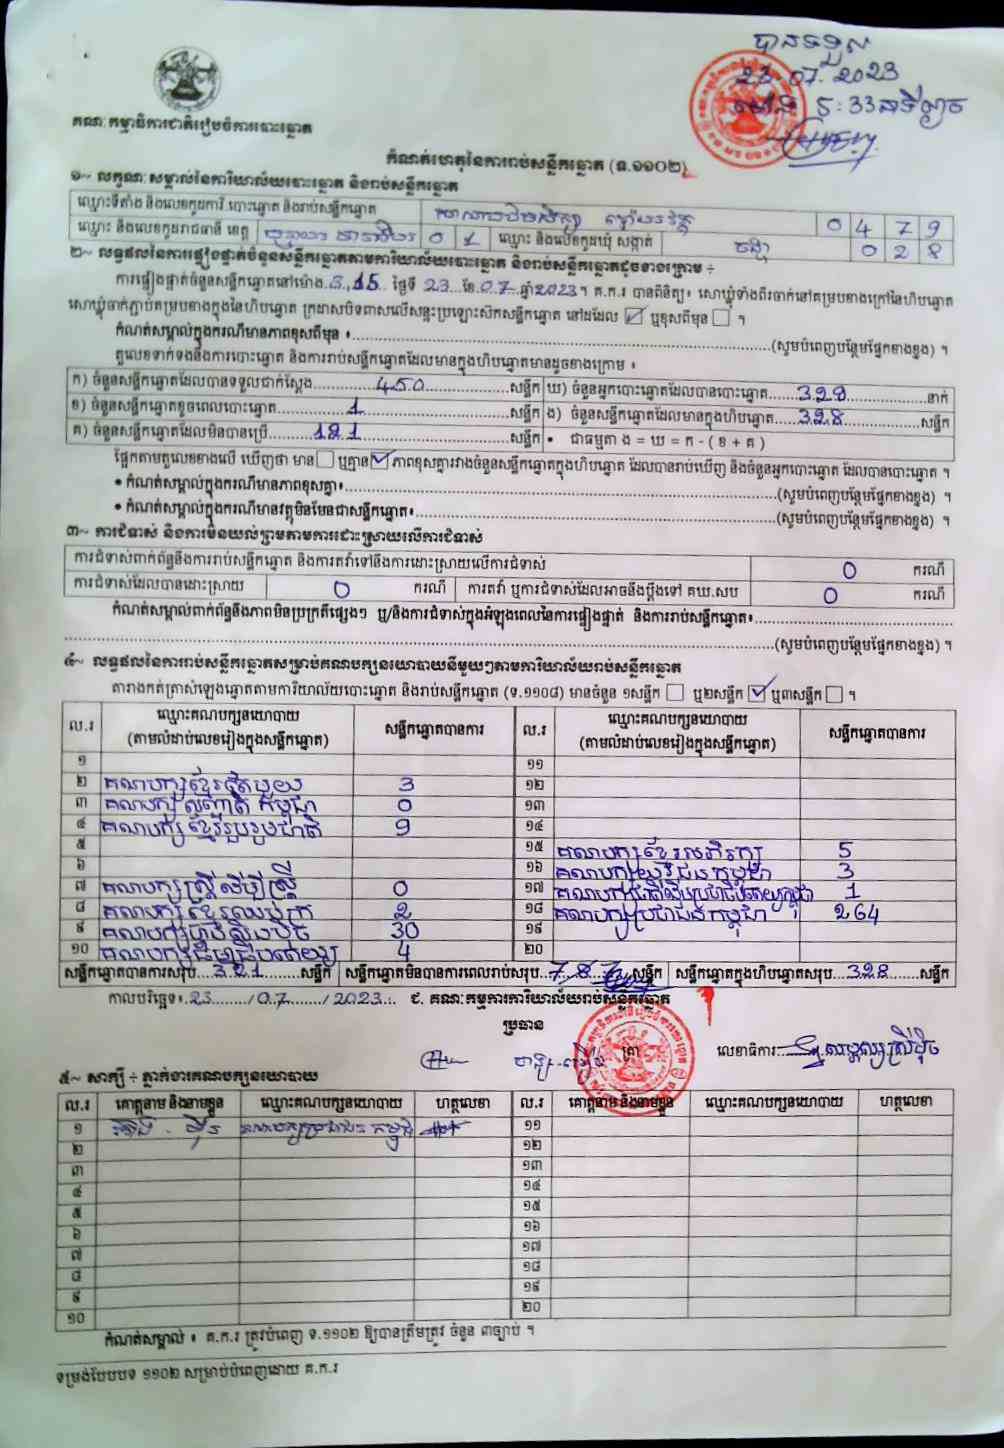 បានទទួល
23.07.2023
ម៉ោង 5:33នាទីល្ងាច
គណៈកម្មាធិការជាតិរៀបចំការបោះឆ្នោត
កំណត់ហេតុនៃការរាប់សន្លឹកឆ្នោត (ទ.១១០២)
១~ លក្ខណៈសម្គាល់នៃការិយាល័យបោះឆ្នោត និងរាប់សន្លឹកឆ្នោត
ឈ្មោះទីតាំង និងលេខកូដការិ.បោះឆ្នោត និងរាប់សន្លឹកឆ្នោត 0 4 7 9
ឈ្មោះ និងលេខកូដរាជធានី ខេត្ត បន្ទាយមានជ័យ 0 1 ឈ្មោះ និងលេខកូដឃុំ សង្កាត់ 0 2 8
២~ លទ្ធផលនៃការផ្ទៀងផ្ទាត់ចំនួនសន្លឹកឆ្នោតតាមការិយាល័យបោះឆ្នោត និងរាប់សន្លឹកឆ្នោតដូចខាងក្រោម ÷
ការផ្ទៀងផ្ទាត់ចំនួនសន្លឹកឆ្នោតនៅម៉ោង 3.,15 ថ្ងៃទី 23 ខែ 07 ឆ្នាំ 2023។ គ.ក.រ បានពិនិត្យ៖ សោឃ្លុំទាំងពីរចាក់នៅគម្របខាងក្រៅនៃហិបឆ្នោត
សោឃ្លុំចាក់ភ្ជាប់គម្របខាងក្នុងនៃហិបឆ្នោត ក្រដាសបិទពាសលើសន្លះប្រឡោះសឹកសន្លឹកឆ្នោត នៅដដែល ☑ ឬខុសពីមុន ☐ ។
កំណត់សម្គាល់ក្នុងករណីមានភាពខុសពីមុន ៖ (សូមបំពេញបន្ថែមផ្នែកខាងខ្នង) ។
តួលេខទាក់ទងនឹងការបោះឆ្នោត និងការរាប់សន្លឹកឆ្នោតដែលមានក្នុងហិបឆ្នោតមានដូចខាងក្រោម ៖
ក) ចំនួនសន្លឹកឆ្នោតដែលបានទទួលជាក់ស្តែង 450 សន្លឹក ឃ) ចំនួនអ្នកបោះឆ្នោតដែលបានបោះឆ្នោត 328 នាក់
ខ) ចំនួនសន្លឹកឆ្នោតខូចពេលបោះឆ្នោត 1 សន្លឹក ង) ចំនួនសន្លឹកឆ្នោតដែលមានក្នុងហិបឆ្នោត 328 សន្លឹក
គ) ចំនួនសន្លឹកឆ្នោតដែលមិនបានប្រើ 121 សន្លឹក • ជាធម្មតា ង = ឃ = ក - ( ខ + គ )
ផ្អែកតាមតួលេខខាងលើ ឃើញថា មាន ☐ ឬគ្មាន ☑ ភាពខុសគ្នារវាងចំនួនសន្លឹកឆ្នោតក្នុងហិបឆ្នោត ដែលបានរាប់ឃើញ និងចំនួនអ្នកបោះឆ្នោត ដែលបានបោះឆ្នោត ។
• កំណត់សម្គាល់ក្នុងករណីមានភាពខុសគ្នា៖ (សូមបំពេញបន្ថែមផ្នែកខាងខ្នង) ។
• កំណត់សម្គាល់ក្នុងករណីមានវត្ថុមិនមែនជាសន្លឹកឆ្នោត៖ (សូមបំពេញបន្ថែមផ្នែកខាងខ្នង) ។
៣~ ការជំទាស់ និងការមិនយល់ព្រមតាមការដោះស្រាយលើការជំទាស់
ការជំទាស់ពាក់ព័ន្ធនឹងការរាប់សន្លឹកឆ្នោត និងការតវ៉ាទៅនឹងការដោះស្រាយលើការជំទាស់ 0 ករណី
ការជំទាស់ដែលបានដោះស្រាយ 0 ករណី ការតវ៉ា ឬការជំទាស់ដែលអាចនឹងប្តឹងទៅ គឃ.សប 0 ករណី
កំណត់សម្គាល់ពាក់ព័ន្ធនឹងភាពមិនប្រក្រតីផ្សេងៗ ឬ/និងការជំទាស់ក្នុងអំឡុងពេលនៃការផ្ទៀងផ្ទាត់ និងការរាប់សន្លឹកឆ្នោត៖
(សូមបំពេញបន្ថែមផ្នែកខាងខ្នង) ។
៤~ លទ្ធផលនៃការរាប់សន្លឹកឆ្នោតសម្រាប់គណបក្សនយោបាយនីមួយៗតាមការិយាល័យរាប់សន្លឹកឆ្នោត
តារាងកត់ត្រាសំឡេងឆ្នោតតាមការិយាល័យបោះឆ្នោត និងរាប់សន្លឹកឆ្នោត (ទ.១១០៨) មានចំនួន ១សន្លឹក ☐ ឬ២សន្លឹក ☑ ឬ៣សន្លឹក ☐ ។
ល.រ ឈ្មោះគណបក្សនយោបាយ (តាមលំដាប់លេខរៀងក្នុងសន្លឹកឆ្នោត) សន្លឹកឆ្នោតបានការ ល.រ ឈ្មោះគណបក្សនយោបាយ (តាមលំដាប់លេខរៀងក្នុងសន្លឹកឆ្នោត) សន្លឹកឆ្នោតបានការ
១ ១១
២ គណបក្សខ្មែរតែមួយ 3 ១២
៣ គណបក្សបញ្ញាជាតិកម្ពុជា 0 ១៣
៤ គណបក្សខ្មែររួបរួមជាតិ 9 ១៤
៥ ១៥ គណបក្សខ្មែរអភិរក្ស 5
៦ ១៦ គណបក្សយុវជនកម្ពុជា 3
៧ គណបក្សស្ត្រីដើម្បីស្ត្រី 0 ១៧ គណបក្ស ប្រជាធិបតេយ្យកម្ពុជា 1
៨ គណបក្សខ្មែរឈប់ក្រ 2 ១៨ គណបក្សប្រជាជនកម្ពុជា 264
៩ គណបក្សហ៊្វុនស៊ិនប៉ិច 30 ១៩
១០ គណបក្សធម្មាធិបតេយ្យ 4 ២០
សន្លឹកឆ្នោតបានការសរុប 321 សន្លឹក សន្លឹកឆ្នោតមិនបានការពេលរាប់សរុប 7 សន្លឹក សន្លឹកឆ្នោតក្នុងហិបឆ្នោតសរុប 328 សន្លឹក
កាលបរិច្ឆេទ៖ 23 / 07 / 2023 ជ. គណៈកម្មការការិយាល័យរាប់សន្លឹកឆ្នោត
ប្រធាន
ត្រា លេខាធិការ
៥~ សាក្សី ÷ ភ្នាក់ងារគណបក្សនយោបាយ
ល.រ គោត្តនាម និងនាមខ្លួន ឈ្មោះគណបក្សនយោបាយ ហត្ថលេខា ល.រ គោត្តនាម និងនាមខ្លួន ឈ្មោះគណបក្សនយោបាយ ហត្ថលេខា
១ គណបក្សប្រជាជនកម្ពុជា ១១
២ ១២
៣ ១៣
៤ ១៤
៥ ១៥
៦ ១៦
៧ ១៧
៨ ១៨
៩ ១៩
១០ ២០
កំណត់សម្គាល់ ៖ គ.ក.រ ត្រូវបំពេញ ទ.១១០២ ឱ្យបានត្រឹមត្រូវ ចំនួន ៣ច្បាប់ ។
ទម្រង់បែបបទ ១១០២ សម្រាប់បំពេញដោយ គ.ក.រ